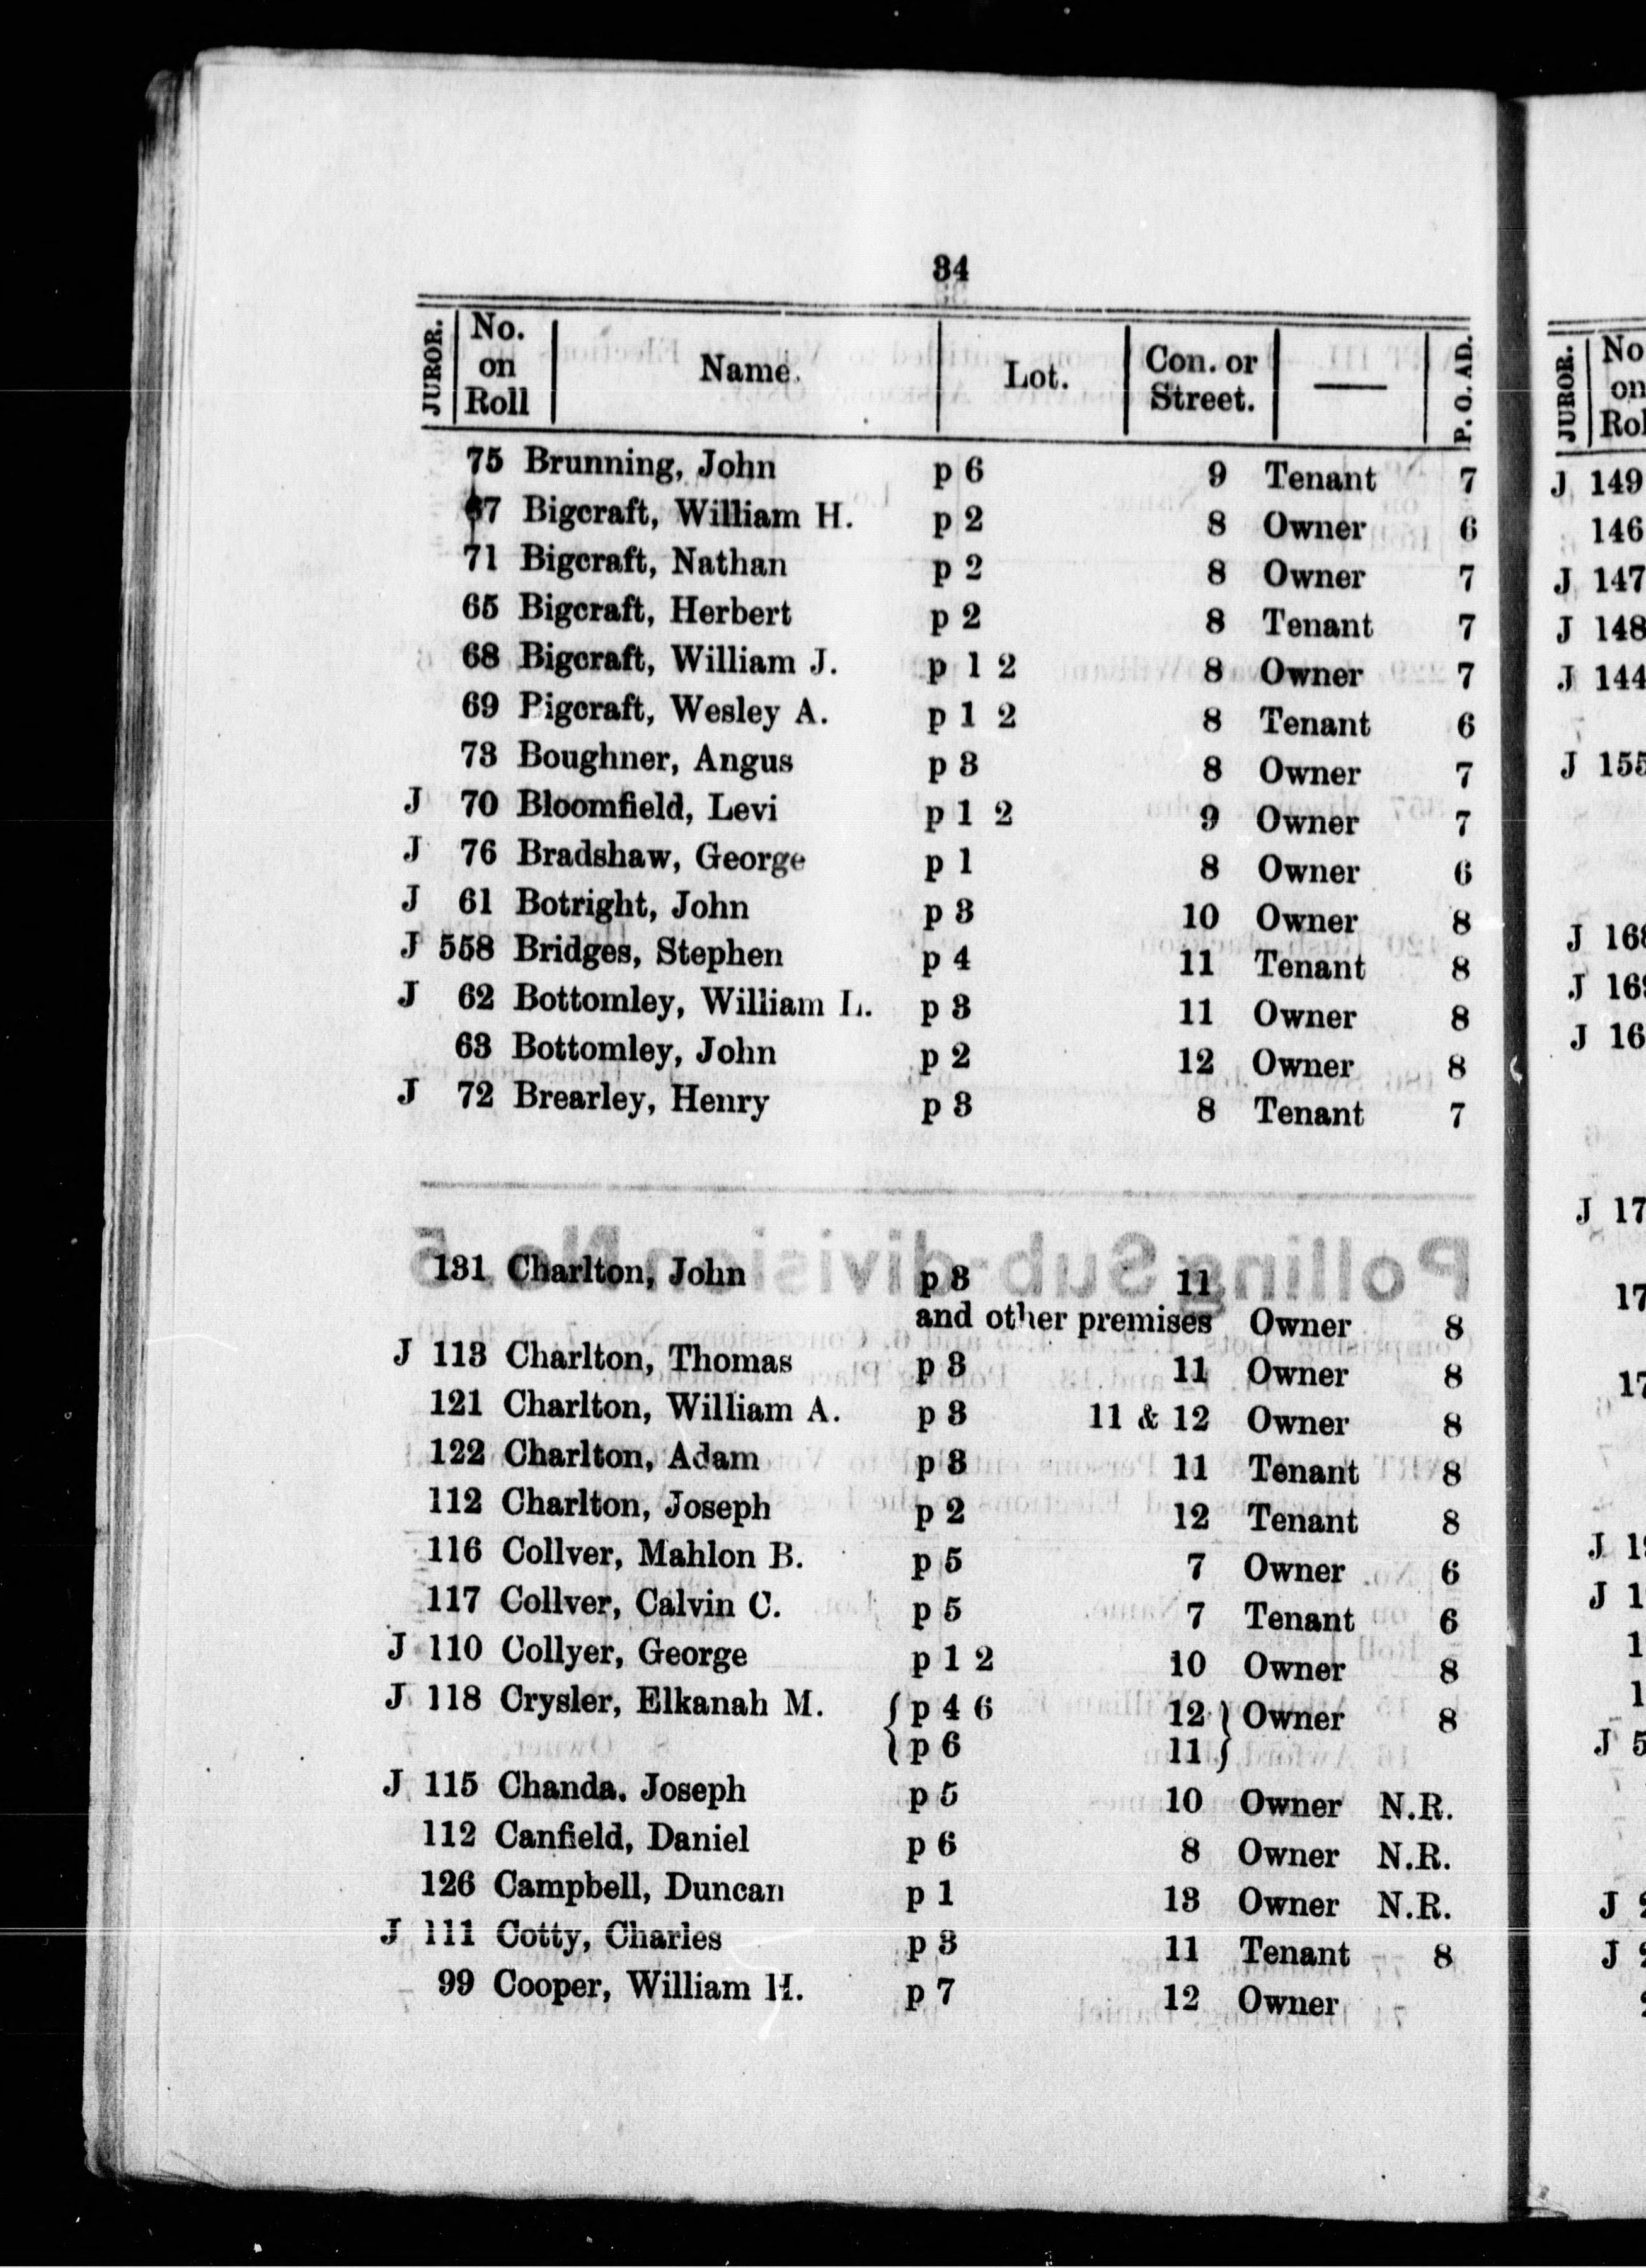 34
JUROR. No. on Roll Name. Lot. Con. or Street. — P. O. AD.
75 Brunning, John p 6 9 Tenant 7
67 Bigcraft, William H. p 2 8 Owner 6
71 Bigcraft, Nathan p 2 8 Owner 7
65 Bigcraft, Herbert p 2 8 Tenant 7
68 Bigcraft, William J. p 1 2 8 Owner 7
69 Pigcraft, Wesley A. p 1 2 8 Tenant 6
73 Boughner, Angus p 3 8 Owner 7
J 70 Bloomfield, Levi p 1 2 9 Owner 7
J 76 Bradshaw, George p 1 8 Owner 6
J 61 Botright, John p 3 10 Owner 8
J 558 Bridges, Stephen p 4 11 Tenant 8
J 62 Bottomley, William L. p 3 11 Owner 8
63 Bottomley, John p 2 12 Owner 8
J 72 Brearley, Henry p 3 8 Tenant 7
131 Charlton, John p 3 11
and other premises Owner 8
J 113 Charlton, Thomas p 3 11 Owner 8
121 Charlton, William A. p 3 11 & 12 Owner 8
122 Charlton, Adam p 3 11 Tenant 8
112 Charlton, Joseph p 2 12 Tenant 8
116 Collver, Mahlon B. p 5 7 Owner 6
117 Collver, Calvin C. p 5 7 Tenant 6
J 110 Collyer, George p 1 2 10 Owner 8
J 118 Crysler, Elkanah M. { p 4 6 12 } Owner 8
{ p 6 11 }
J 115 Chanda. Joseph p 5 10 Owner N.R.
112 Canfield, Daniel p 6 8 Owner N.R.
126 Campbell, Duncan p 1 13 Owner N.R.
J 111 Cotty, Charles p 3 11 Tenant 8
99 Cooper, William H. p 7 12 Owner
JUROR. No
on
Rol
J 149
146
J 147
J 148
J 144
J 155
J 16
J 17
17
17